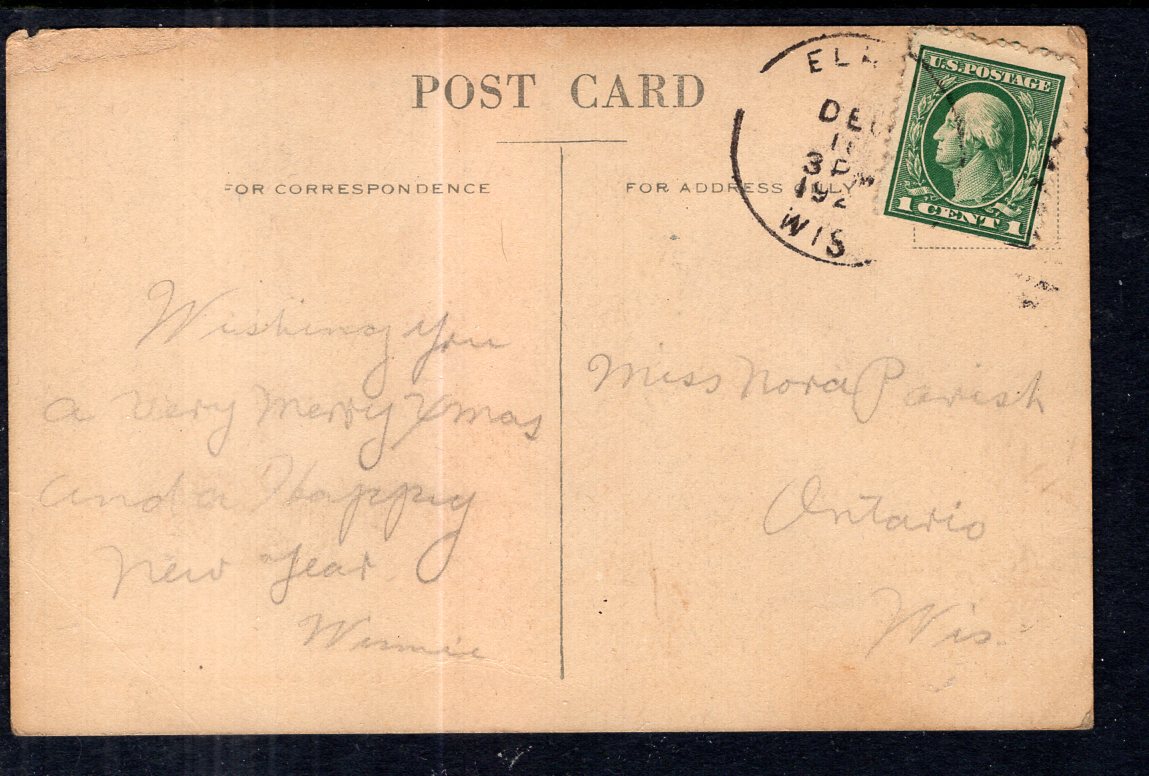 POST CARD
FOR CORRESPONDENCE
FOR ADDRESS ONLY
U.S. POSTAGE
1 CENT 1
DEC
3 P M
192
WIS
Wishing you
a very merry Xmas
and a Happy
new year
Winnie
Miss Nora Parish
Ontario
Wis.